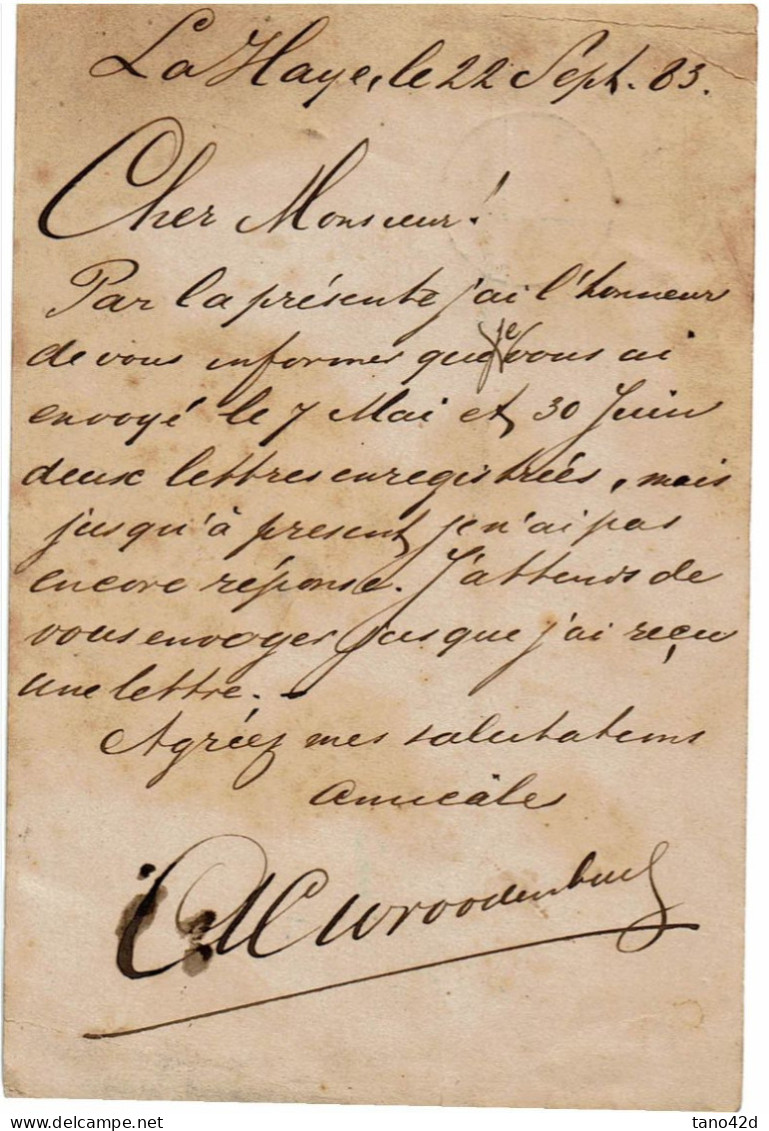 La Haye, le 22 Sept. 83.
Cher Monsieur!
Par la présente j'ai l'honneur
de vous informer que je vous ai
envoyé le 7 Mai et 30 Juin
deux lettres enregistrées, mais
jusqu'à present je n'ai pas
encore réponse. J'attends de
vous envoyer jusque j'ai reçu
une lettre. -
Agréez mes salutations
amicâles
tano42d